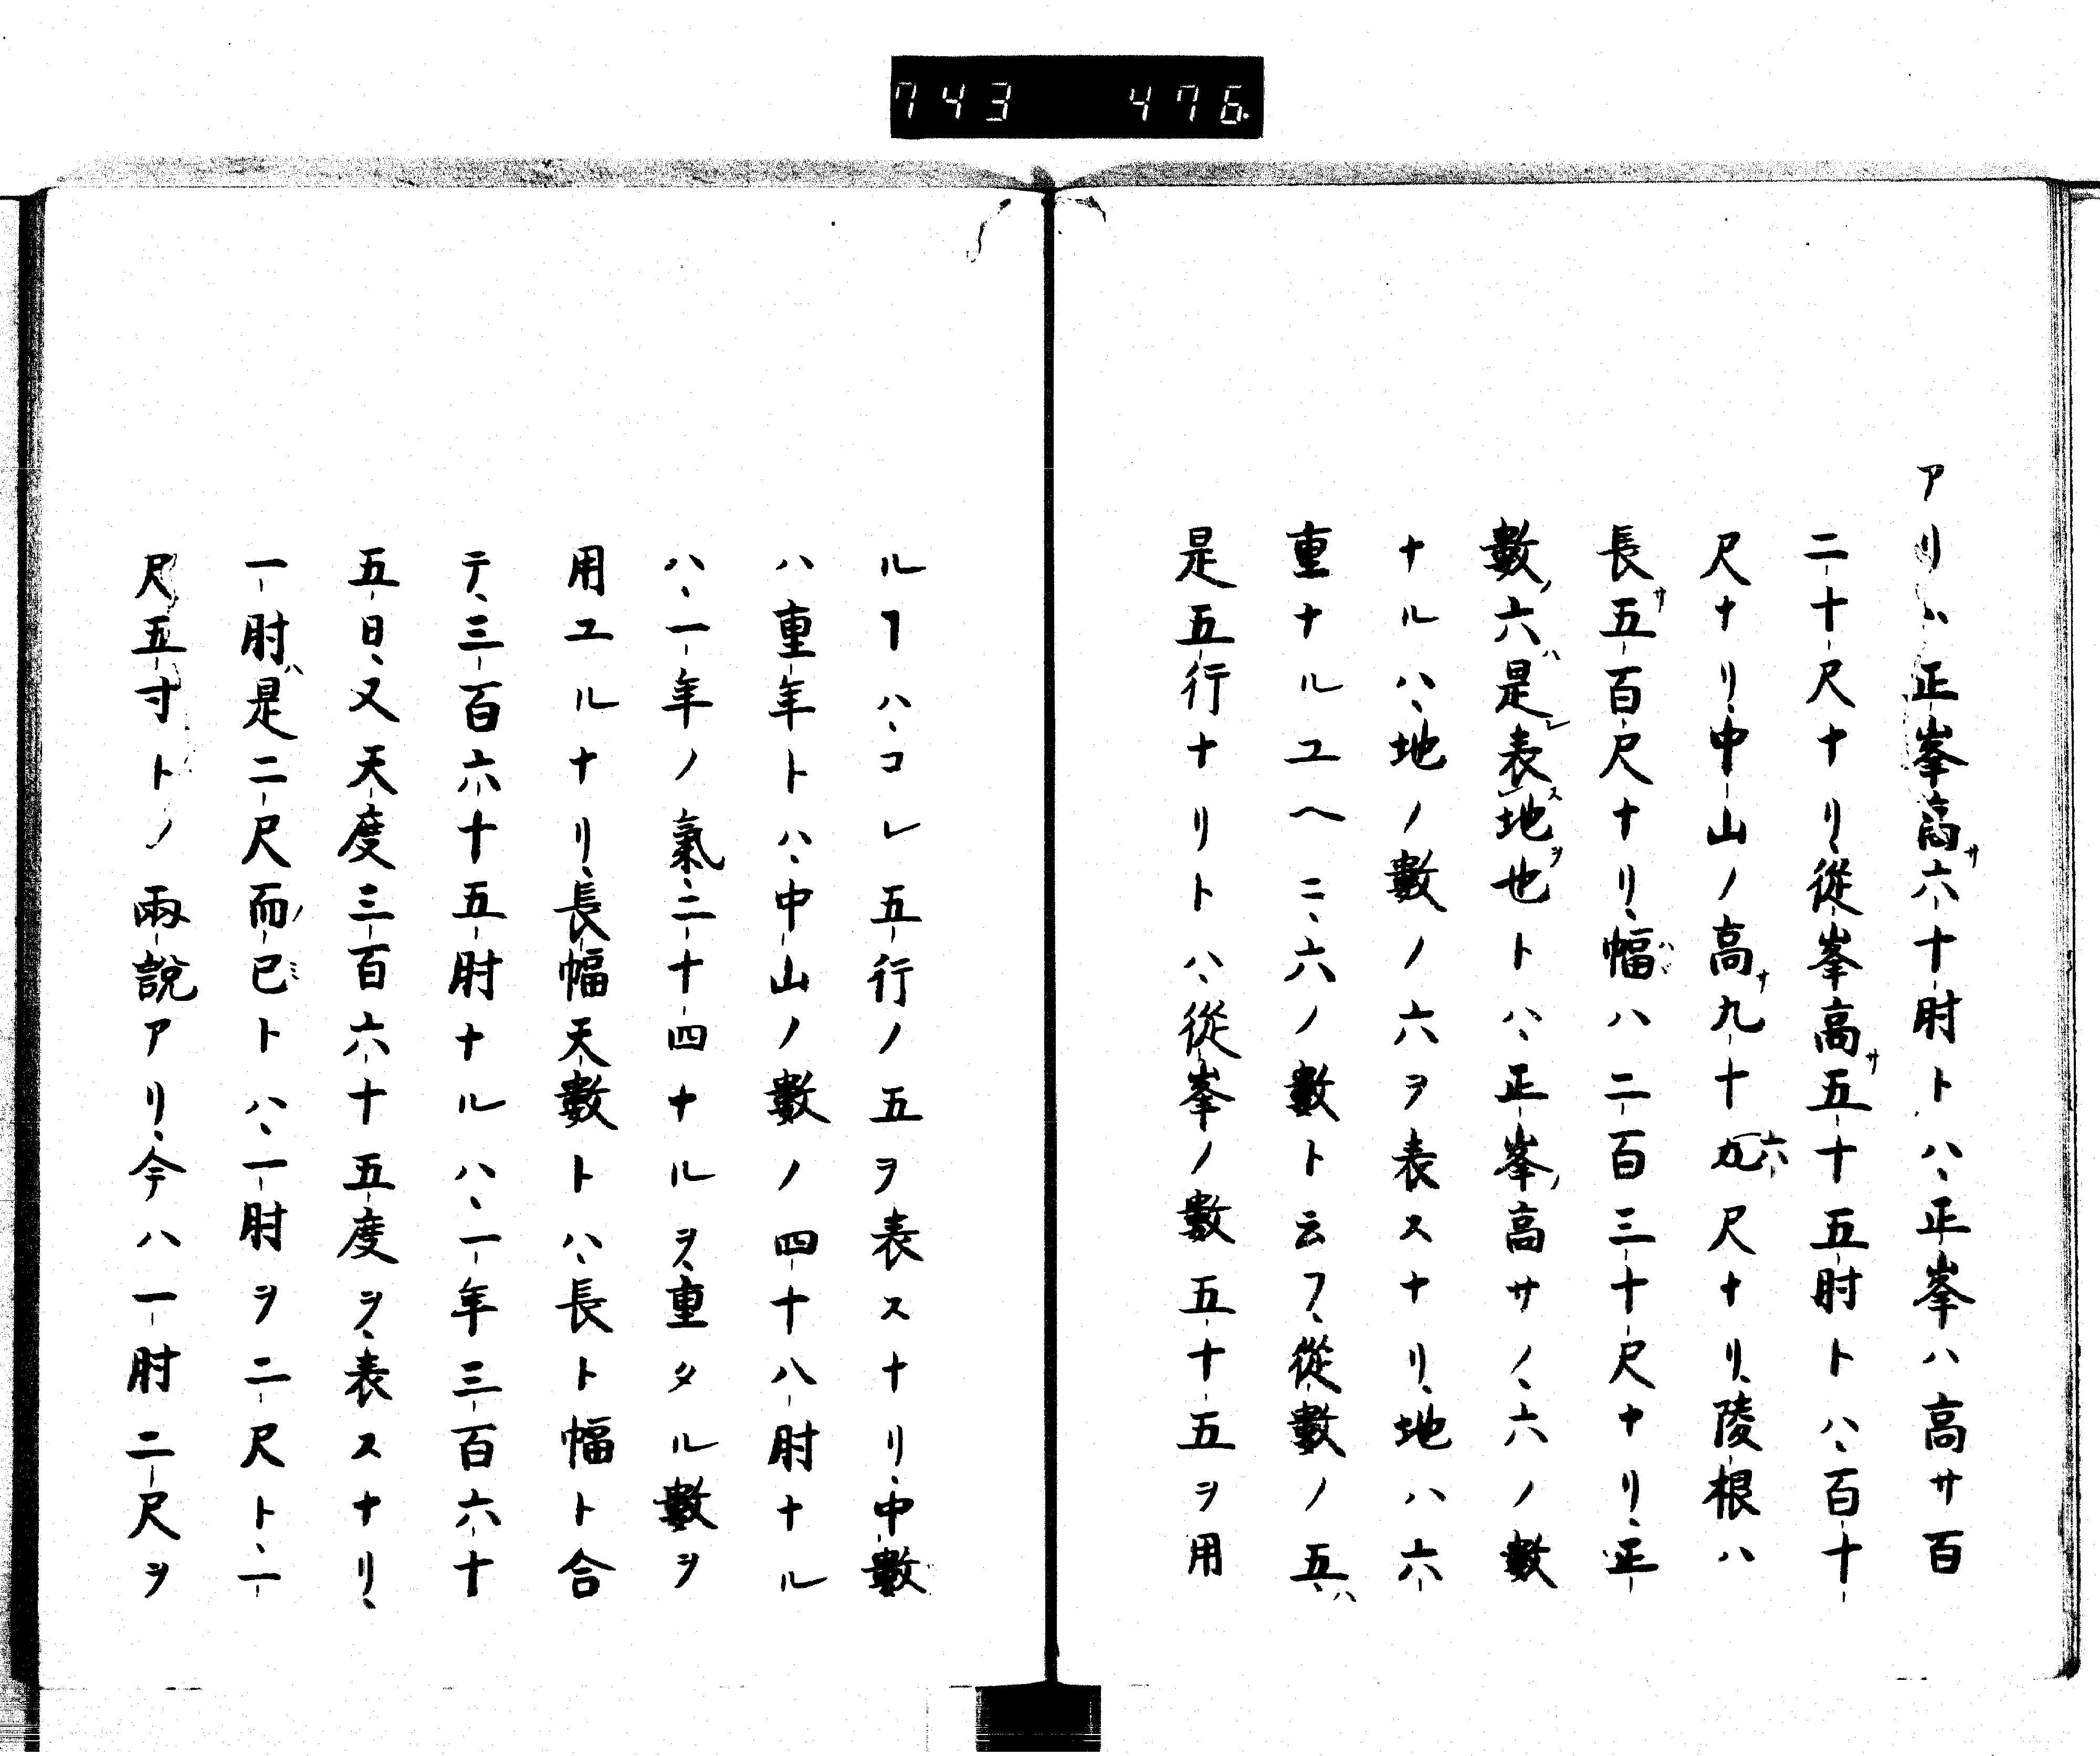 743 476
アリ、正峯高サ六十肘トハ、正峯ハ高サ百
二十尺ナリ、從峯高サ五十五肘トハ、百十
尺ナリ、中山ノ高サ九十六尺ナリ、陵根ハ
長サ五百尺ナリ、幅ハヾハ二百三十尺ナリ、正
數ノ六ハ是レ表スル地ヲ也トハ、正峯ノ高サノ、六ノ數
ナルハ、地ノ數ノ六ヲ表スナリ、地ハ六
重ナルユヘニ、六ノ數ト云フ、從數ノ五ハ、
是五行ナリトハ、從峯ノ數五十五ヲ用
ルヿハ、コレ五行ノ五ヲ表スナリ、中數
ハ重年トハ、中山ノ數ノ四十八肘ナル
ハ、一年ノ氣、二十四ナルヲ、重タル數ヲ
用ユルナリ、長幅天數トハ、長ト幅ト合
テ、三百六十五肘ナルハ、一年三百六十
五日、又天度三百六十五度ヲ、表スナリ、
一肘ハ是二尺而ノ已ミトハ、一肘ヲ二尺ト、一
尺五寸トノ兩說アリ、今ハ一肘二尺ヲ